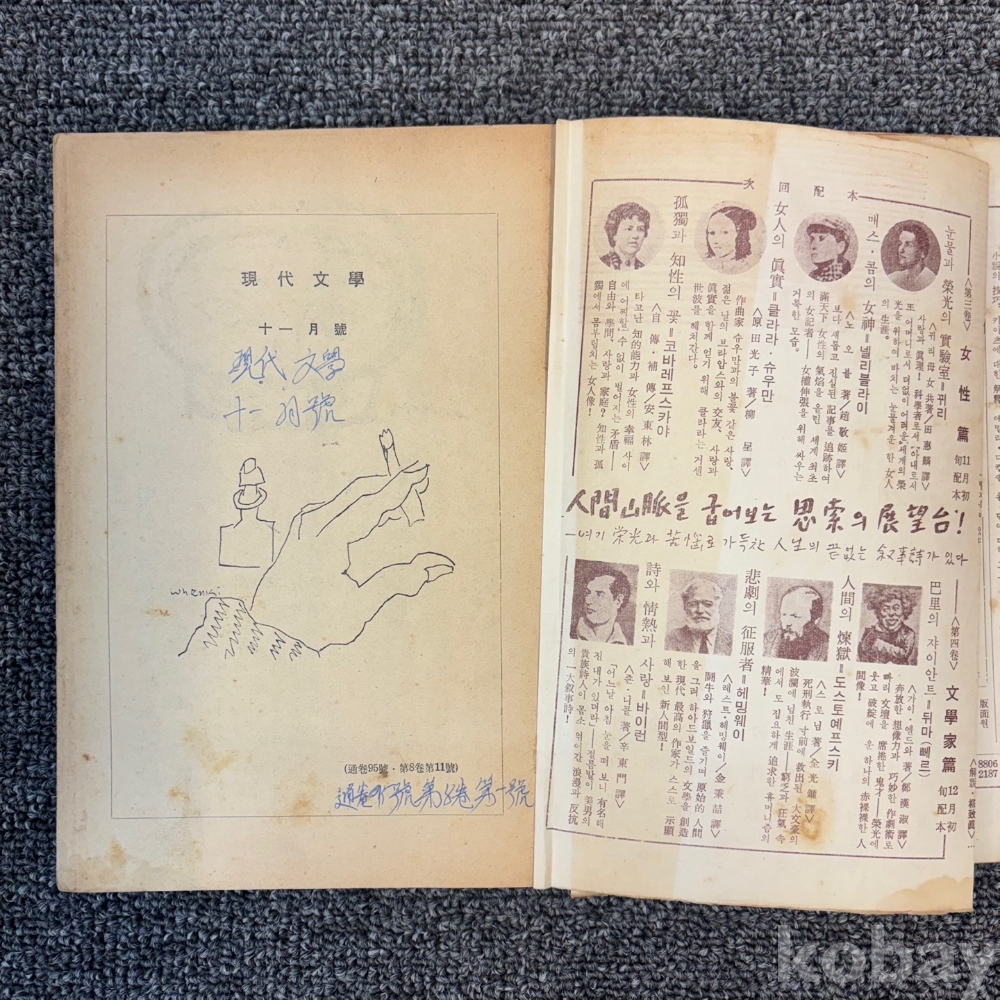 現代文學
十一月號
現代 文學
十一月號
when
(通卷95號·第8卷第11號)
次回配本
〈第三卷〉 女性篇 11月初旬配本
눈물과 榮光의 實驗室=퀴리
〈퀴리母女共著/田惠麟譯〉
사랑과 眞理! 科學者로서 아내로서
또 어머니로서 더없이 어려운 세계의 榮
光을 위하여 바치는 눈물겨운 한 女人
의 生涯。
매스·콤의 女神=넬리블라이
〈노오블著/趙敬姬譯〉
보다 새롭고 진실된 記事를 追跡하여
滿天下 女性의 氣焰을 올린 세계 최초
의 女記者── 女權伸張을 위해 싸우는
거룩한 모습。
女人의 眞實=클라라·슈우만
〈原田光子著/柳星譯〉
作曲家 슈우만과의 불꽃 같은 사랑、
젊은 날의 브라암스와의 交友、 사랑과
眞實을 함께 얻기 위해 클라라는 거센
世波를 헤치간다。
孤獨과 知性의 꽃=코바레프스카야
〈自傳·補傳/安東林譯〉
타고난 知的能力과 女性의 幸福 사이
에 어찌할 수 없이 벌어지는 矛盾──
自由와 學問、 사랑과 家庭? 知性과 孤
獨에서 몸부림치는 女人像!
人間山脈을 굽어보는 思索의 展望台!
─여기 栄光과 苦惱로 가득찬 人生의 끝없는 敍事詩가 있다
〈第四卷〉 文學家篇 12月初旬配本
巴里의 쟈이안트=뒤마(뻬르)
〈가이·엔드와著/鄭漢淑譯〉
奔放한 想像力과 巧妙한 作劇術로
빠리 文壇을 席捲한 鬼才── 榮光에
웃고 破綻에 운 하나의 赤裸裸한 人
間像!
人間의 煉獄=도스토예프스키
〈스로님著/全光鏞譯〉
死刑執行 낮前에 救出된 大文豪의
波瀾에 넘친 生涯── 窮乏과 狂氣 속
에서도 집요하게 追求한 휴머니즘의
精華!
悲劇의 征服者=헤밍웨이
〈레스터·헤밍웨이/金秉喆譯〉
鬪牛와 狩獵을 즐기며 原始的 人間
을 그려 하아드보일드의 文學을 創造
한 現代 最高의 作家가 스스로 示顯
해 보인 新人間型!
詩와 情熱과 사랑=바이런
〈죤·니콜著/辛東門譯〉
「어느날 아침 눈을 떠 보니 有名해
진 내가 있더라」── 절름발이 美男의
貴族詩人이 몸소 엮어 간 浪漫과 反抗
의 一大敍事詩!
8806
2187
kobay